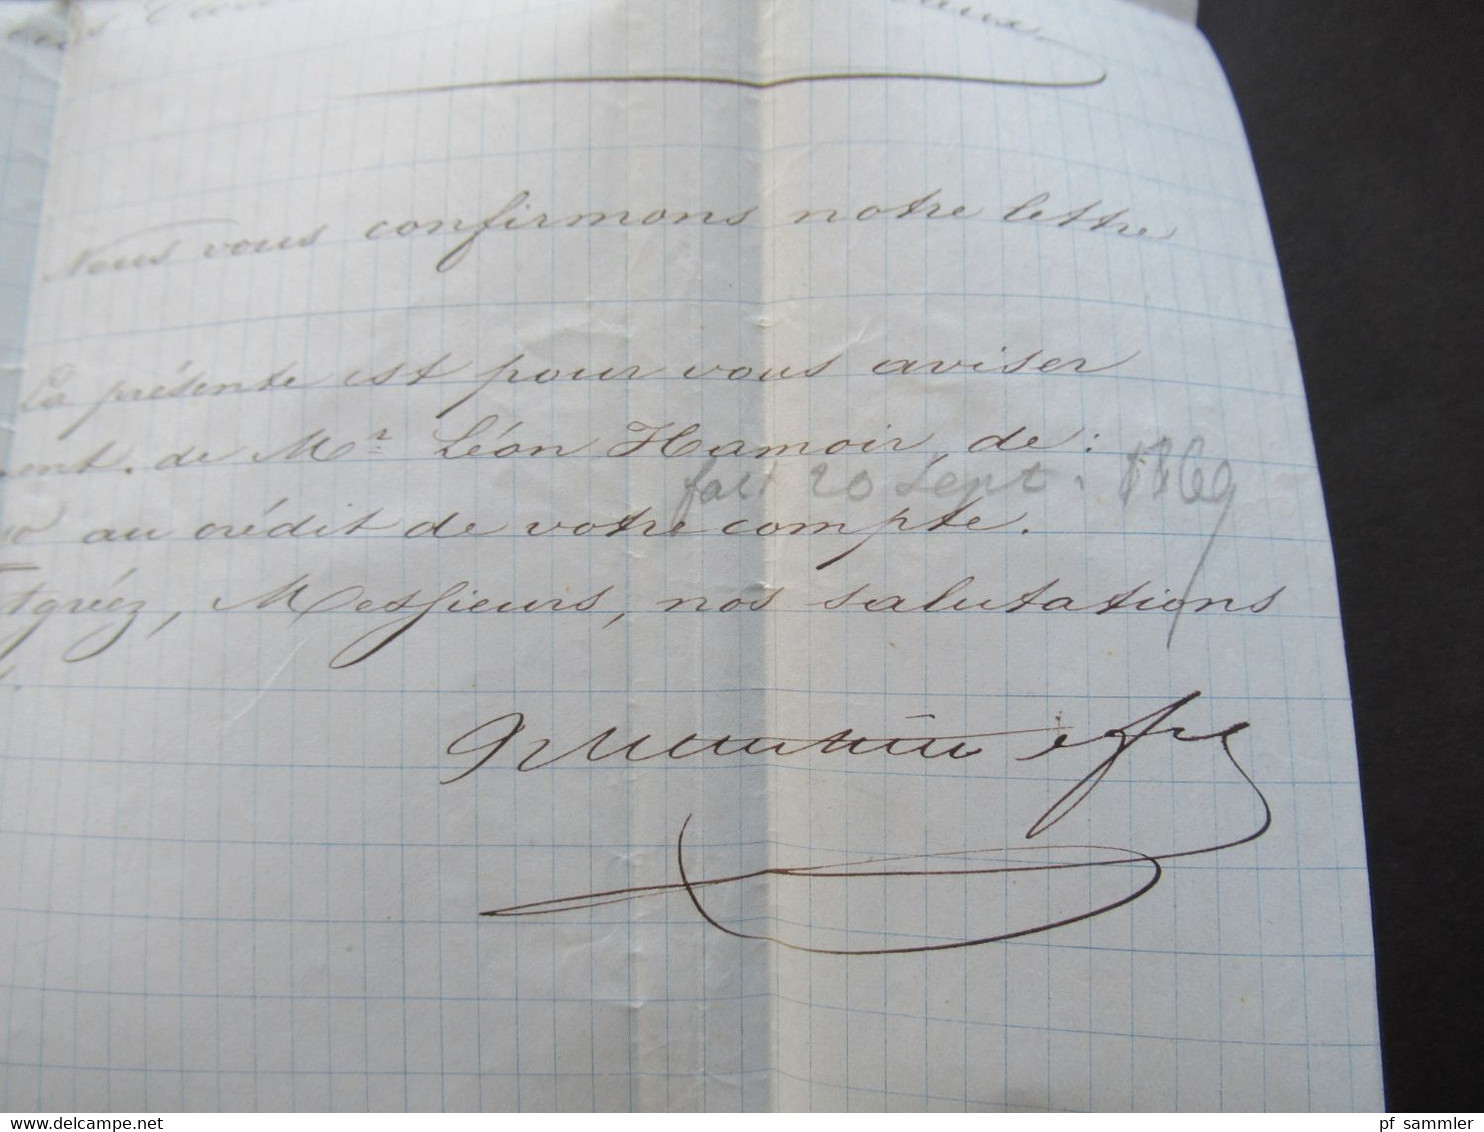 Nous vous confirmons notre lettre
La présente est pour vous aviser
ment. de Mr Léon Hamoir, de:
20 Sept. 1869
au crédit de votre compte.
Agréez, Messieurs, nos salutations
pf_sammler
www.delcampe.net